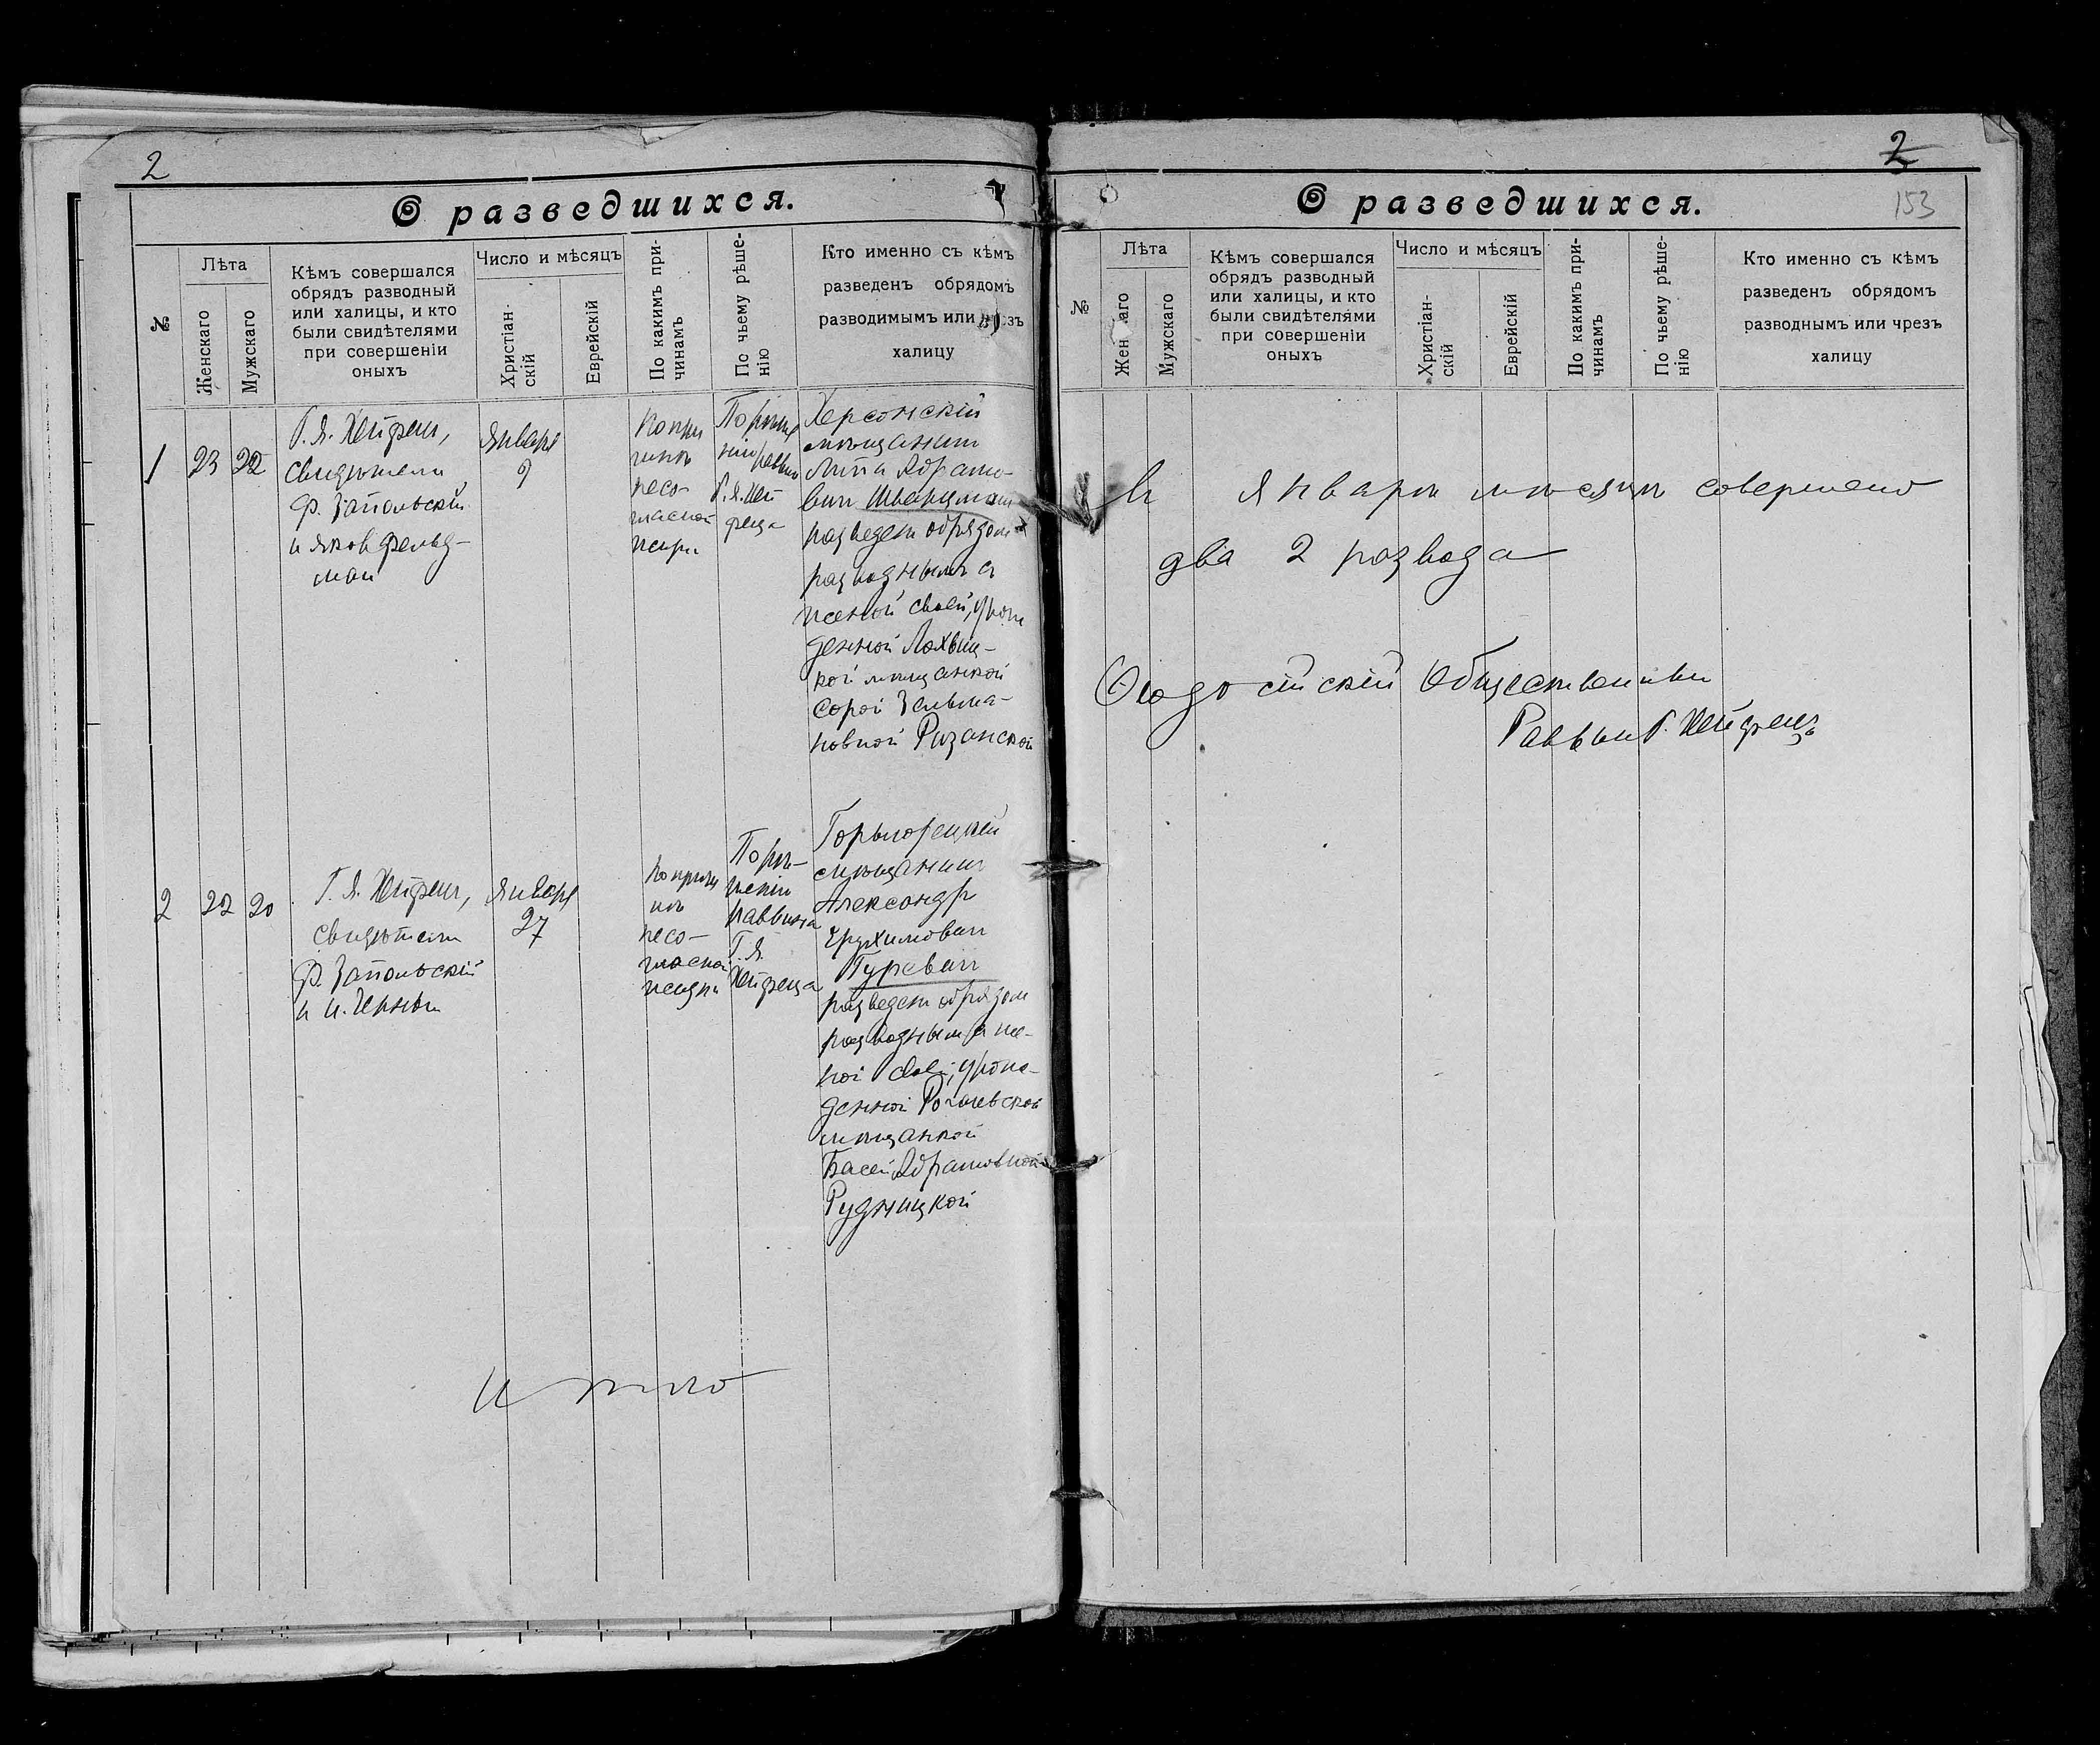 2
О разведшихся.
№
Лѣта
Женскаго
Мужскаго
Кѣмъ совершался
обрядъ разводный
или халицы, и кто
были свидѣтелями
при совершеніи
оныхъ
Число и мѣсяцъ
Христіан-
скій
Еврейскій
По какимъ при-
чинамъ
По чьему рѣше-
нію
Кто именно съ кѣмъ
разведенъ обрядомъ
разводимымъ или
халицу
1
23
22
Г. Я. Хейфецъ,
свидѣтели
Ф. Запольскій
и Яковъ Фельд-
манъ
Января
9
По при
чинѣ
несо-
гласной
жизни
По рѣше
нію раввина
Г. Я. Хей
феца
Херсонскій
мѣщанинъ
Липа Абрамо-
вичъ
разведенъ обрядомъ
разводнымъ съ
женой своей, урож
денной Лохвиц-
кой мѣщанкой
Сорой Зельма-
новной Ризанской
2
22
20
Г. Я. Хейфецъ,
свидѣтели
Ф. Запольскій
и И. Черный
Января
27
По причи
нѣ
несо-
гласной
жизни
По рѣ-
шенію
раввина
Г. Я.
Хейфеца
Горыгорецкій
мѣщанинъ
Александръ
Ерухимовичъ
Гуревичъ
разведенъ обрядомъ
разводнымъ съ же-
ной своей, урож-
денной Рогачевской
мѣщанкой
Басей Абрамовной
Рудницкой
Итого
2
153
О разведшихся.
№
Лѣта
Жен аго
Мужскаго
Кѣмъ совершался
обрядъ разводный
или халицы, и кто
были свидѣтелями
при совершеніи
оныхъ
Число и мѣсяцъ
Христіан-
скій
Еврейскій
По какимъ при-
чинамъ
По чьему рѣше-
нію
Кто именно съ кѣмъ
разведенъ обрядомъ
разводнымъ или чрезъ
халицу
Въ Январѣ мѣсяцѣ совершено
два 2 развода
Ѳеодосійскій Общественный
Раввинъ Г. Хейфецъ